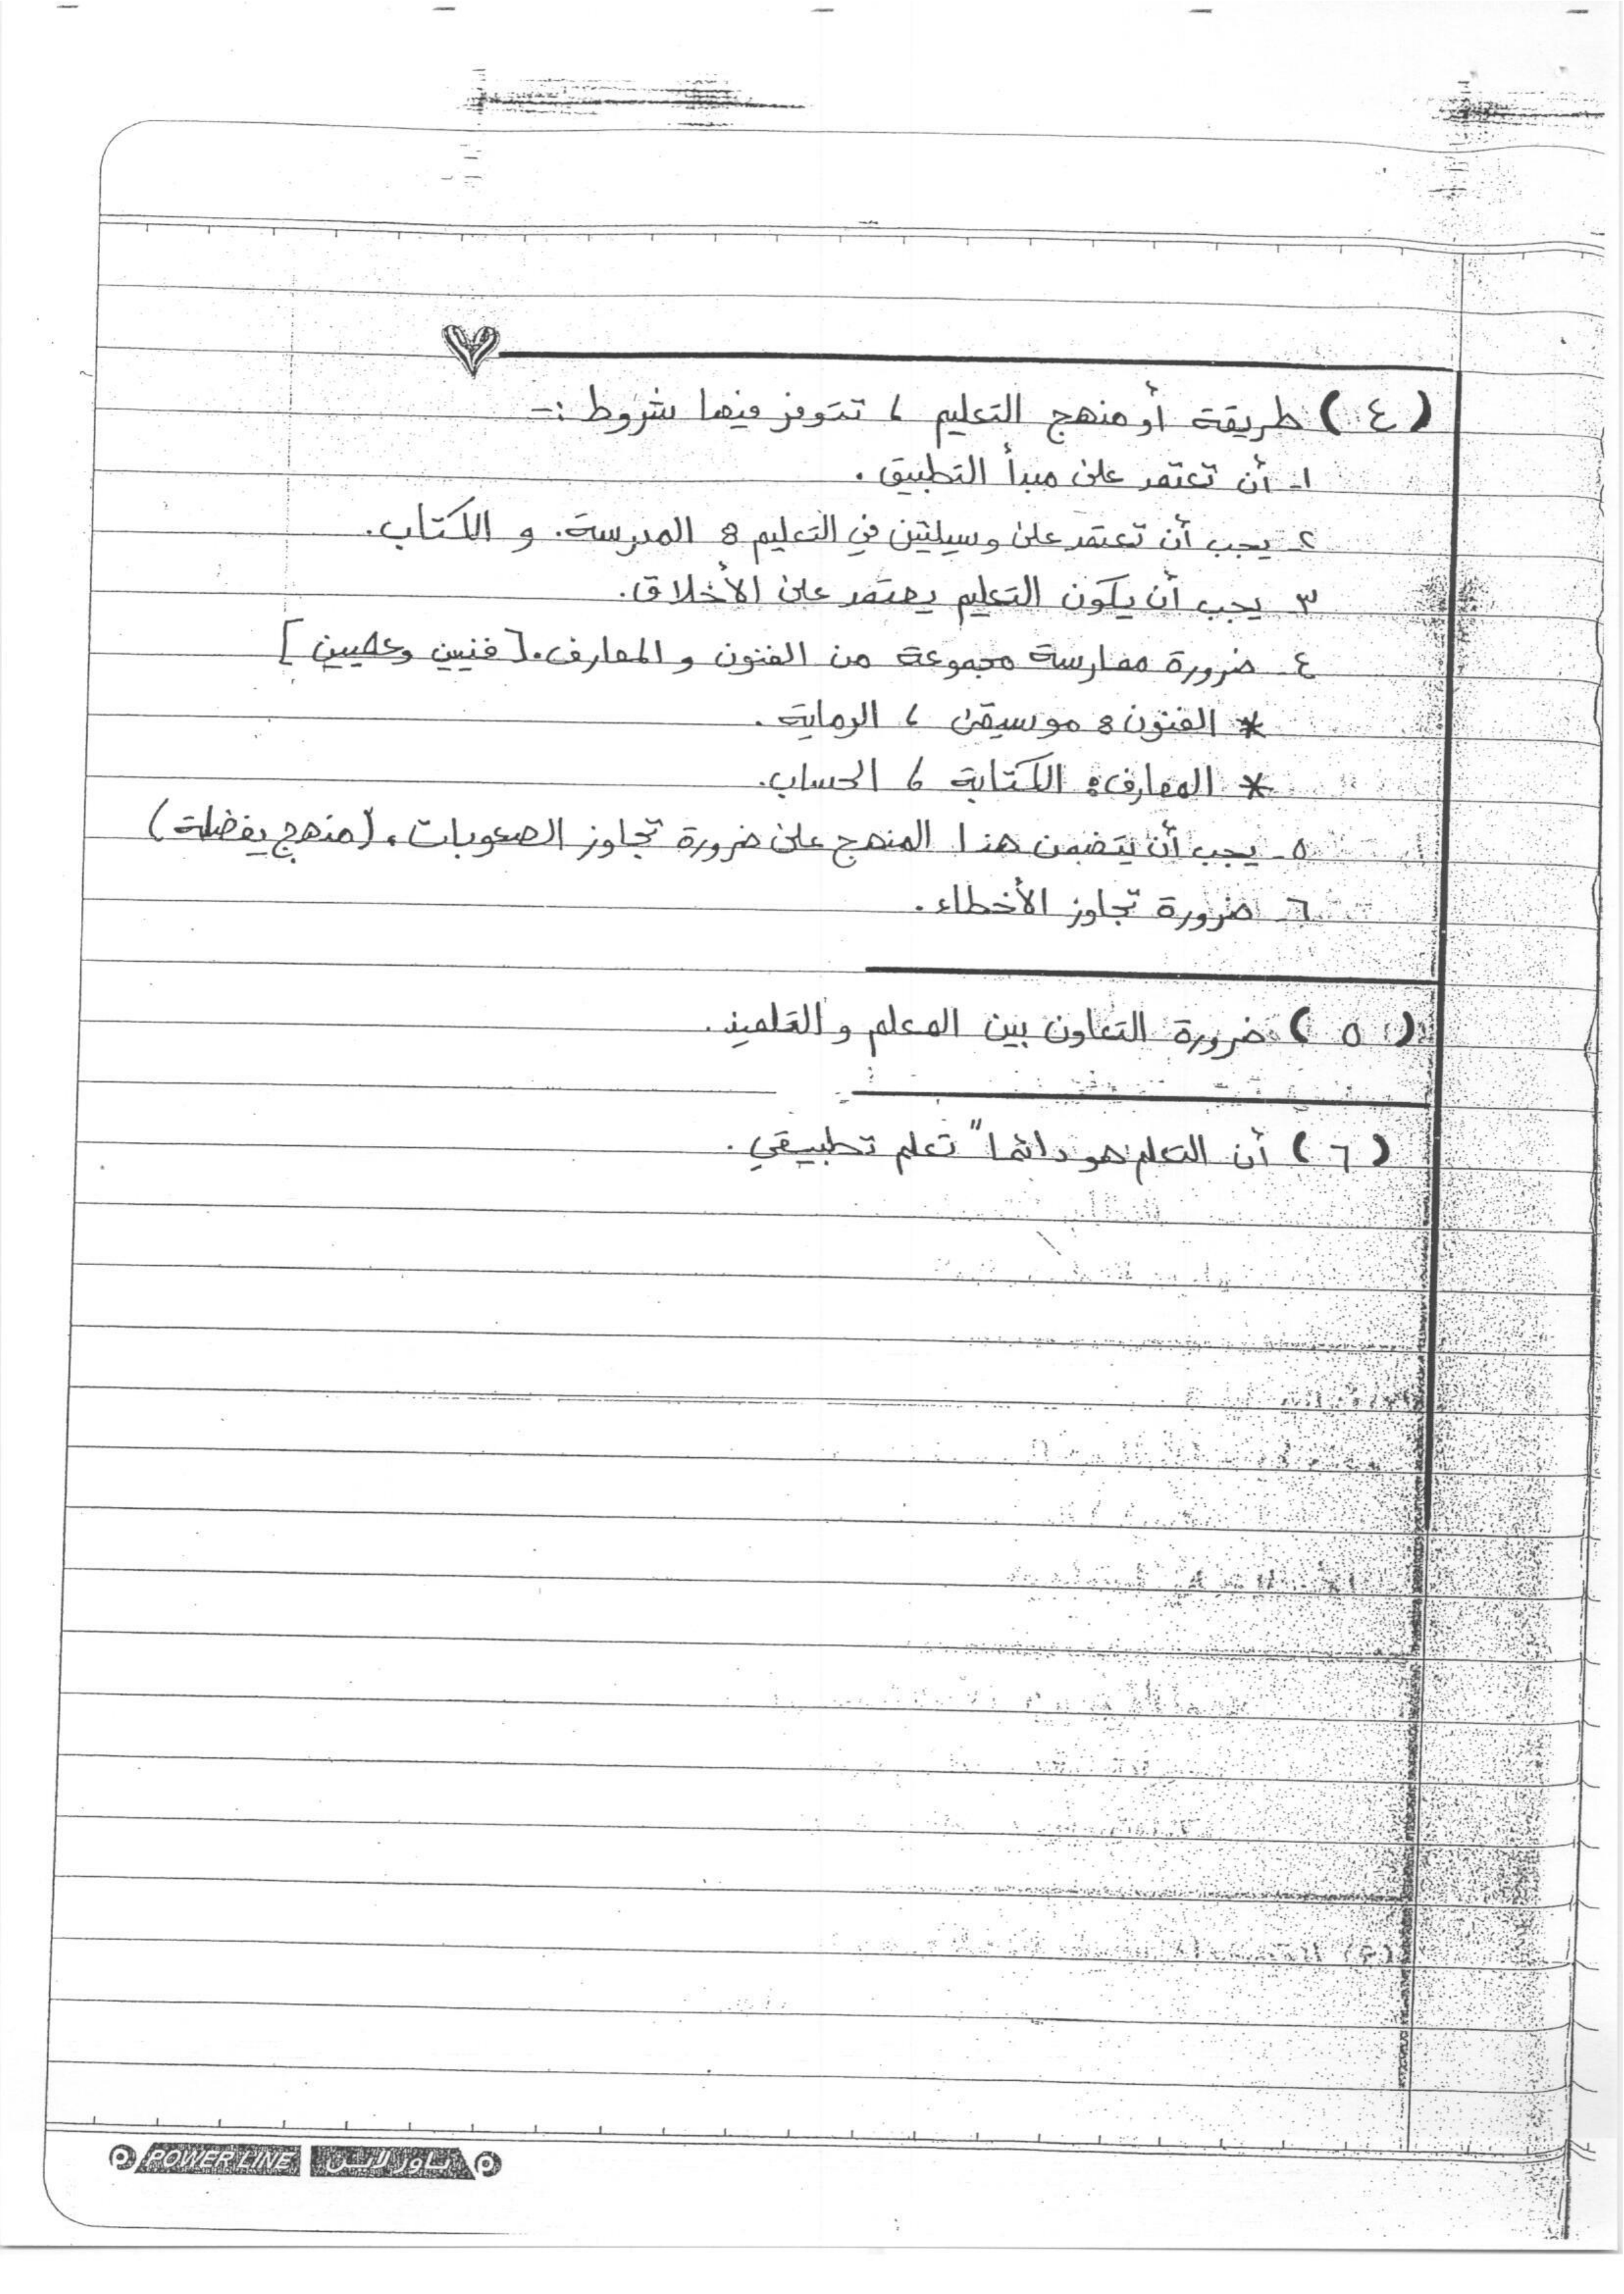 (٤) طريقة أو منهج التعليم ، تتوفر فيها شروط :-
١- أن تعتمد على مبدأ التطبيق .
٢- يجب أن تعتمد على وسيلتين في التعليم : المدرسة . و الكتاب .
٣- يجب أن يكون التعليم يعتمد على الأخلاق .
٤- ضرورة ممارسة مجموعة من الفنون و المعارف . [ فنيين وعلميين ]
* الفنون : موسيقى ، الرماية .
* المعارف : الكتابة ، الحساب .
٥- يجب أن يتضمن هذا المنهج على ضرورة تجاوز الصعوبات . (منهج يفضله)
٦- ضرورة تجاوز الأخطاء .
(٥) ضرورة التعاون بين المعلم و التلميذ .
(٦) أن التعلم هو دائماً تعلم تطبيقي .
POWER LINE باور لاين